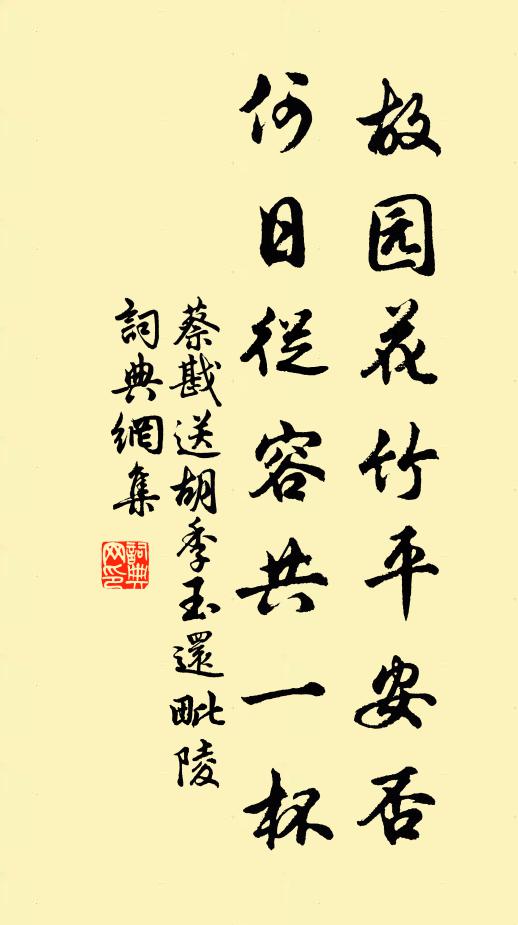 故园花竹平安否
何日從容共一杯
蔡戡送胡季玉還毗陵
詞典網集
詞典网印